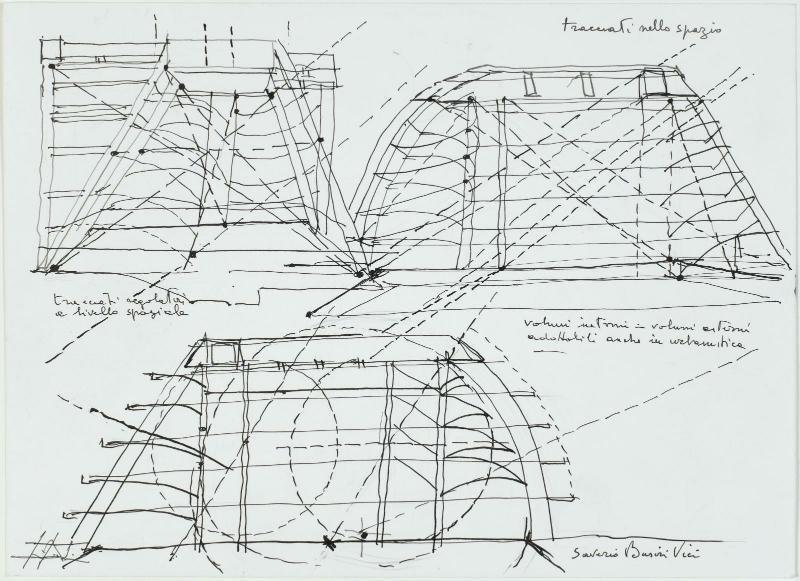 tracciati nello spazio
tracciati regolatori
a livello spaziale
volumi interni = volumi esterni
adottabili anche in urbanistica
Saverio Busiri Vici